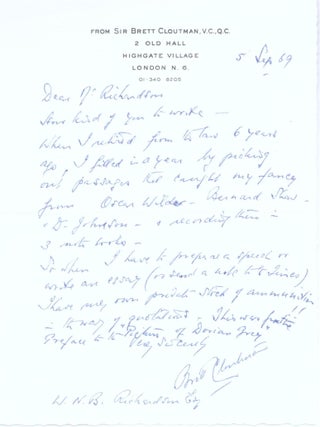 FROM SIR BRETT CLOUTMAN, V.C., Q.C.
2 OLD HALL
HIGHGATE VILLAGE
LONDON N. 6.
01-340 8205
5 Sep 69
Dear Mr Richardson
How kind of you to write —
When I retired from the law 6 years
ago, I filled in a year by picking
out passages that caught my fancy
from Oscar Wilde - Bernard Shaw -
& Dr. Johnson - & recording them in
3 note books -
So when I have to prepare a speech or
write an essay (or send a note to the Times)
I have my own private stock of ammunition!!
in the way of quotations - This was from the
Preface to the "Picture of Dorian Gray"
Very sincerely
Brett Cloutman
W. N. B. Richardson Esq